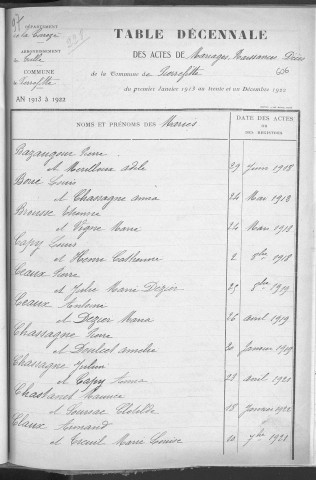 DÉPARTEMENT
de la Corrèze
ARRONDISSEMENT
de Tulle
COMMUNE
de Pierrefitte
AN 1913 à 1922
TABLE DÉCENNALE
DES ACTES de Mariages, Naissances, Décès
de la Commune de Pierrefitte
du premier Janvier 1913 au trente et un Décembre 1922
NOMS ET PRÉNOMS DES Mariés
DATE DES ACTES
OU
DES REGISTRES
Pierre
et adèle 29 Juin 1918
Louis
et Chassagne anna 24 Mai 1913
Brousse Etienne
et Vigne Marie 24 Mai 1913
Capy Louis
et Henri Catherine 2 8bre 1918
Ceaux Pierre
et Julie Marie Dezier 25 8bre 1919
Ceaux Antoine
et Dezier Maria 26 avril 1919
Chassagne Pierre
et amélie 20 Janvier 1919
Chassagne Julien
et Capy 23 avril 1921
Chastanet Maurice
et Clotilde 18 Janvier 1922
Claux Armand
et Marie Louise 10 7bre 1921